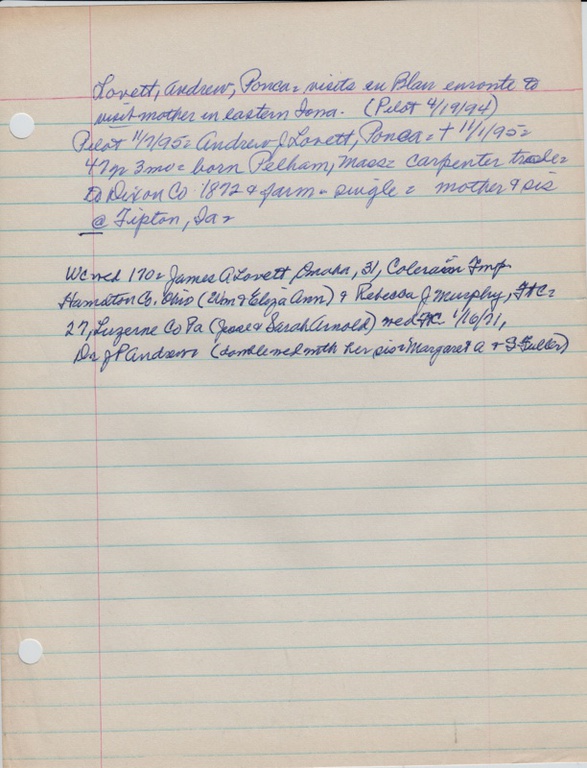 Lovett, Andrew, Ponca = visits in Blair enroute to
visit mother in eastern Iowa. (Pilot 4/19/94)
Pilot 11/7/95 = Andrew J Lovett, Ponca = + 11/1/95 =
47 yr 3 mo = born Pelham, Mass = carpenter trade =
to Dixon Co 1872 & farm = single = mother & sis
@ Tipton, Ia =
WC wed 170 = James A Lovett, Omaha, 31, Colerain Twp
Hamilton Co. Ohio (Wm & Eliza Ann) & Rebecca J Murphy, FtC =
27, Luzerne Co Pa (Jesse & Sarah Arnold) wed FtC 1/10/71,
Dr JP Andrews (double wed with her sis = Margaret A & Fuller)